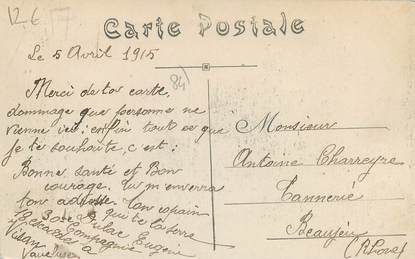 126
Carte Postale
Le 5 Avril 1915
84
Merci de ta carte,
dommage que personne ne
vienne ici enfin tout ce que
je te souhaite c'est :
Bonne santé et Bon
courage, tu m'enverra
ton adresse Ton copain
qui te la serre
Eugène
30e Compagnie
à
Visan
Vaucluse
Monsieur
Antoine Charreyre
Tannerie
Beaujeu
(Rhône)